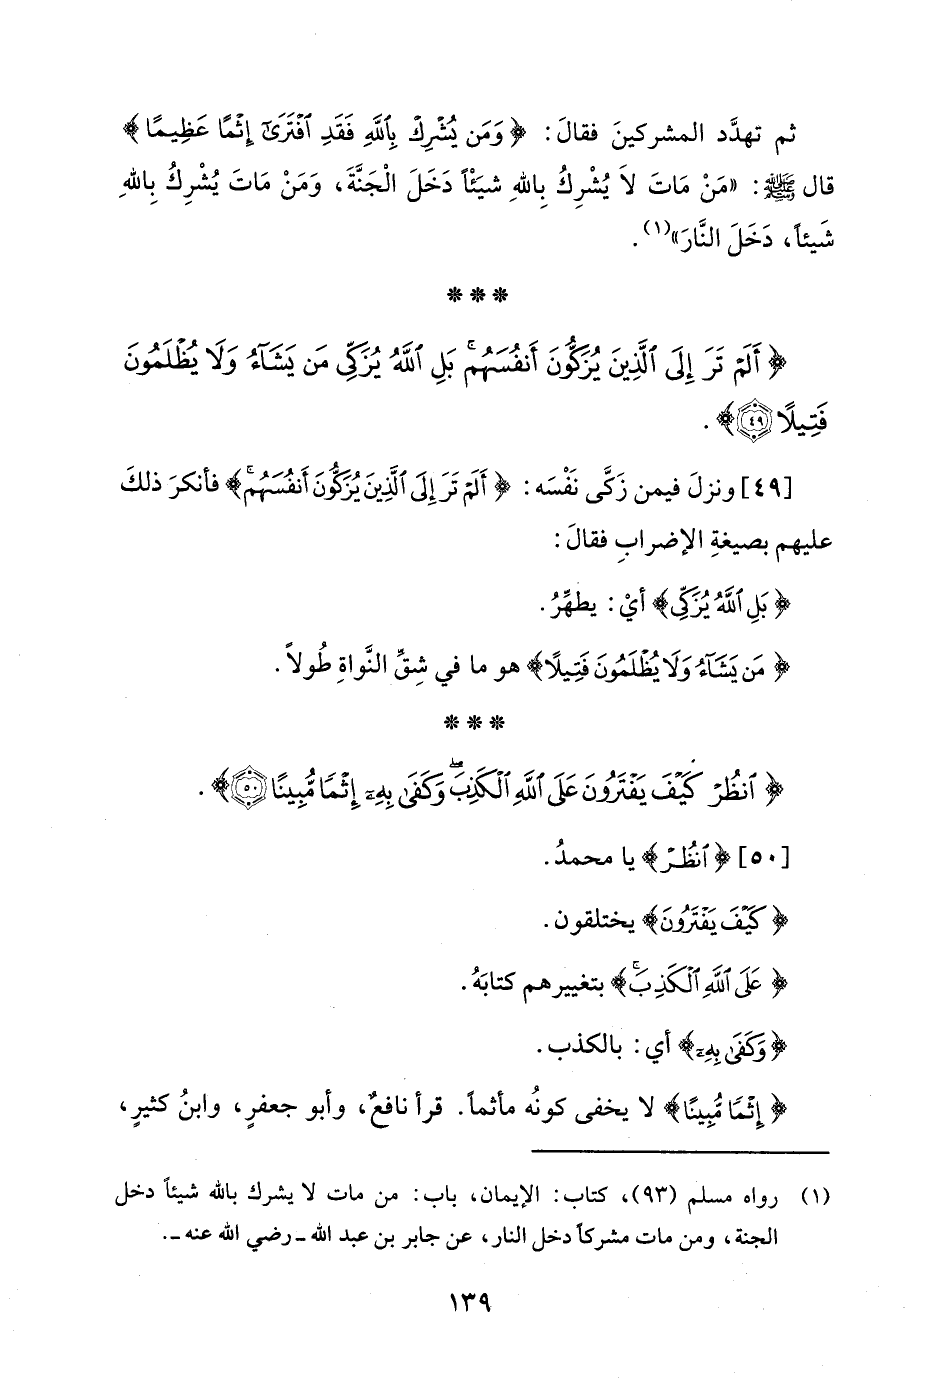 ثم تهدَّد المشركينَ فقالَ: ﴿وَمَن يُشْرِكْ بِٱللَّهِ فَقَدِ ٱفْتَرَىٰٓ إِثْمًا عَظِيمًا﴾
قال ﷺ: «مَنْ مَاتَ لاَ يُشْرِكُ بِاللهِ شَيئْاً دَخَلَ الْجَنَّةَ، وَمَنْ مَاتَ يُشْرِكُ بِاللهِ
شَيئاً، دَخَلَ النَّارَ»(١).
***
﴿أَلَمْ تَرَ إِلَى ٱلَّذِينَ يُزَكُّونَ أَنفُسَهُمۚ بَلِ ٱللَّهُ يُزَكِّى مَن يَشَآءُ وَلَا يُظْلَمُونَ
فَتِيلًا ٤٩﴾.
[٤٩] ونزلَ فيمن زَكَّى نَفْسَه: ﴿أَلَمْ تَرَ إِلَى ٱلَّذِينَ يُزَكُّونَ أَنفُسَهُمۚ﴾ فأنكرَ ذلكَ
عليهم بصيغةِ الإضرابِ فقالَ:
﴿بَلِ ٱللَّهُ يُزَكِّى﴾ أيْ: يطهِّرُ.
﴿مَن يَشَآءُ وَلَا يُظْلَمُونَ فَتِيلًا﴾ هو ما في شِقِّ النَّواةِ طُولاً.
***
﴿ٱنظُرْ كَيْفَ يَفْتَرُونَ عَلَى ٱللَّهِ ٱلْكَذِبَۖ وَكَفَىٰ بِهِۦٓ إِثْمًا مُّبِينًا ٥٠﴾.
[٥٠] ﴿ٱنظُرْ﴾ يا محمدُ.
﴿كَيْفَ يَفْتَرُونَ﴾ يختلقون.
﴿عَلَى ٱللَّهِ ٱلْكَذِبَۚ﴾ بتغييرهم كتابَهُ.
﴿وَكَفَىٰ بِهِۦٓ﴾ أي: بالكذب.
﴿إِثْمًا مُّبِينًا﴾ لا يخفى كونُه مأثماً. قرأ نافعٌ، وأبو جعفرٍ، وابنُ كثيرٍ،
(١) رواه مسلم (٩٣)، كتاب: الإيمان، باب: من مات لا يشرك بالله شيئاً دخل
الجنة، ومن مات مشركاً دخل النار، عن جابر بن عبد الله ـ رضي الله عنه ـ.
١٣٩